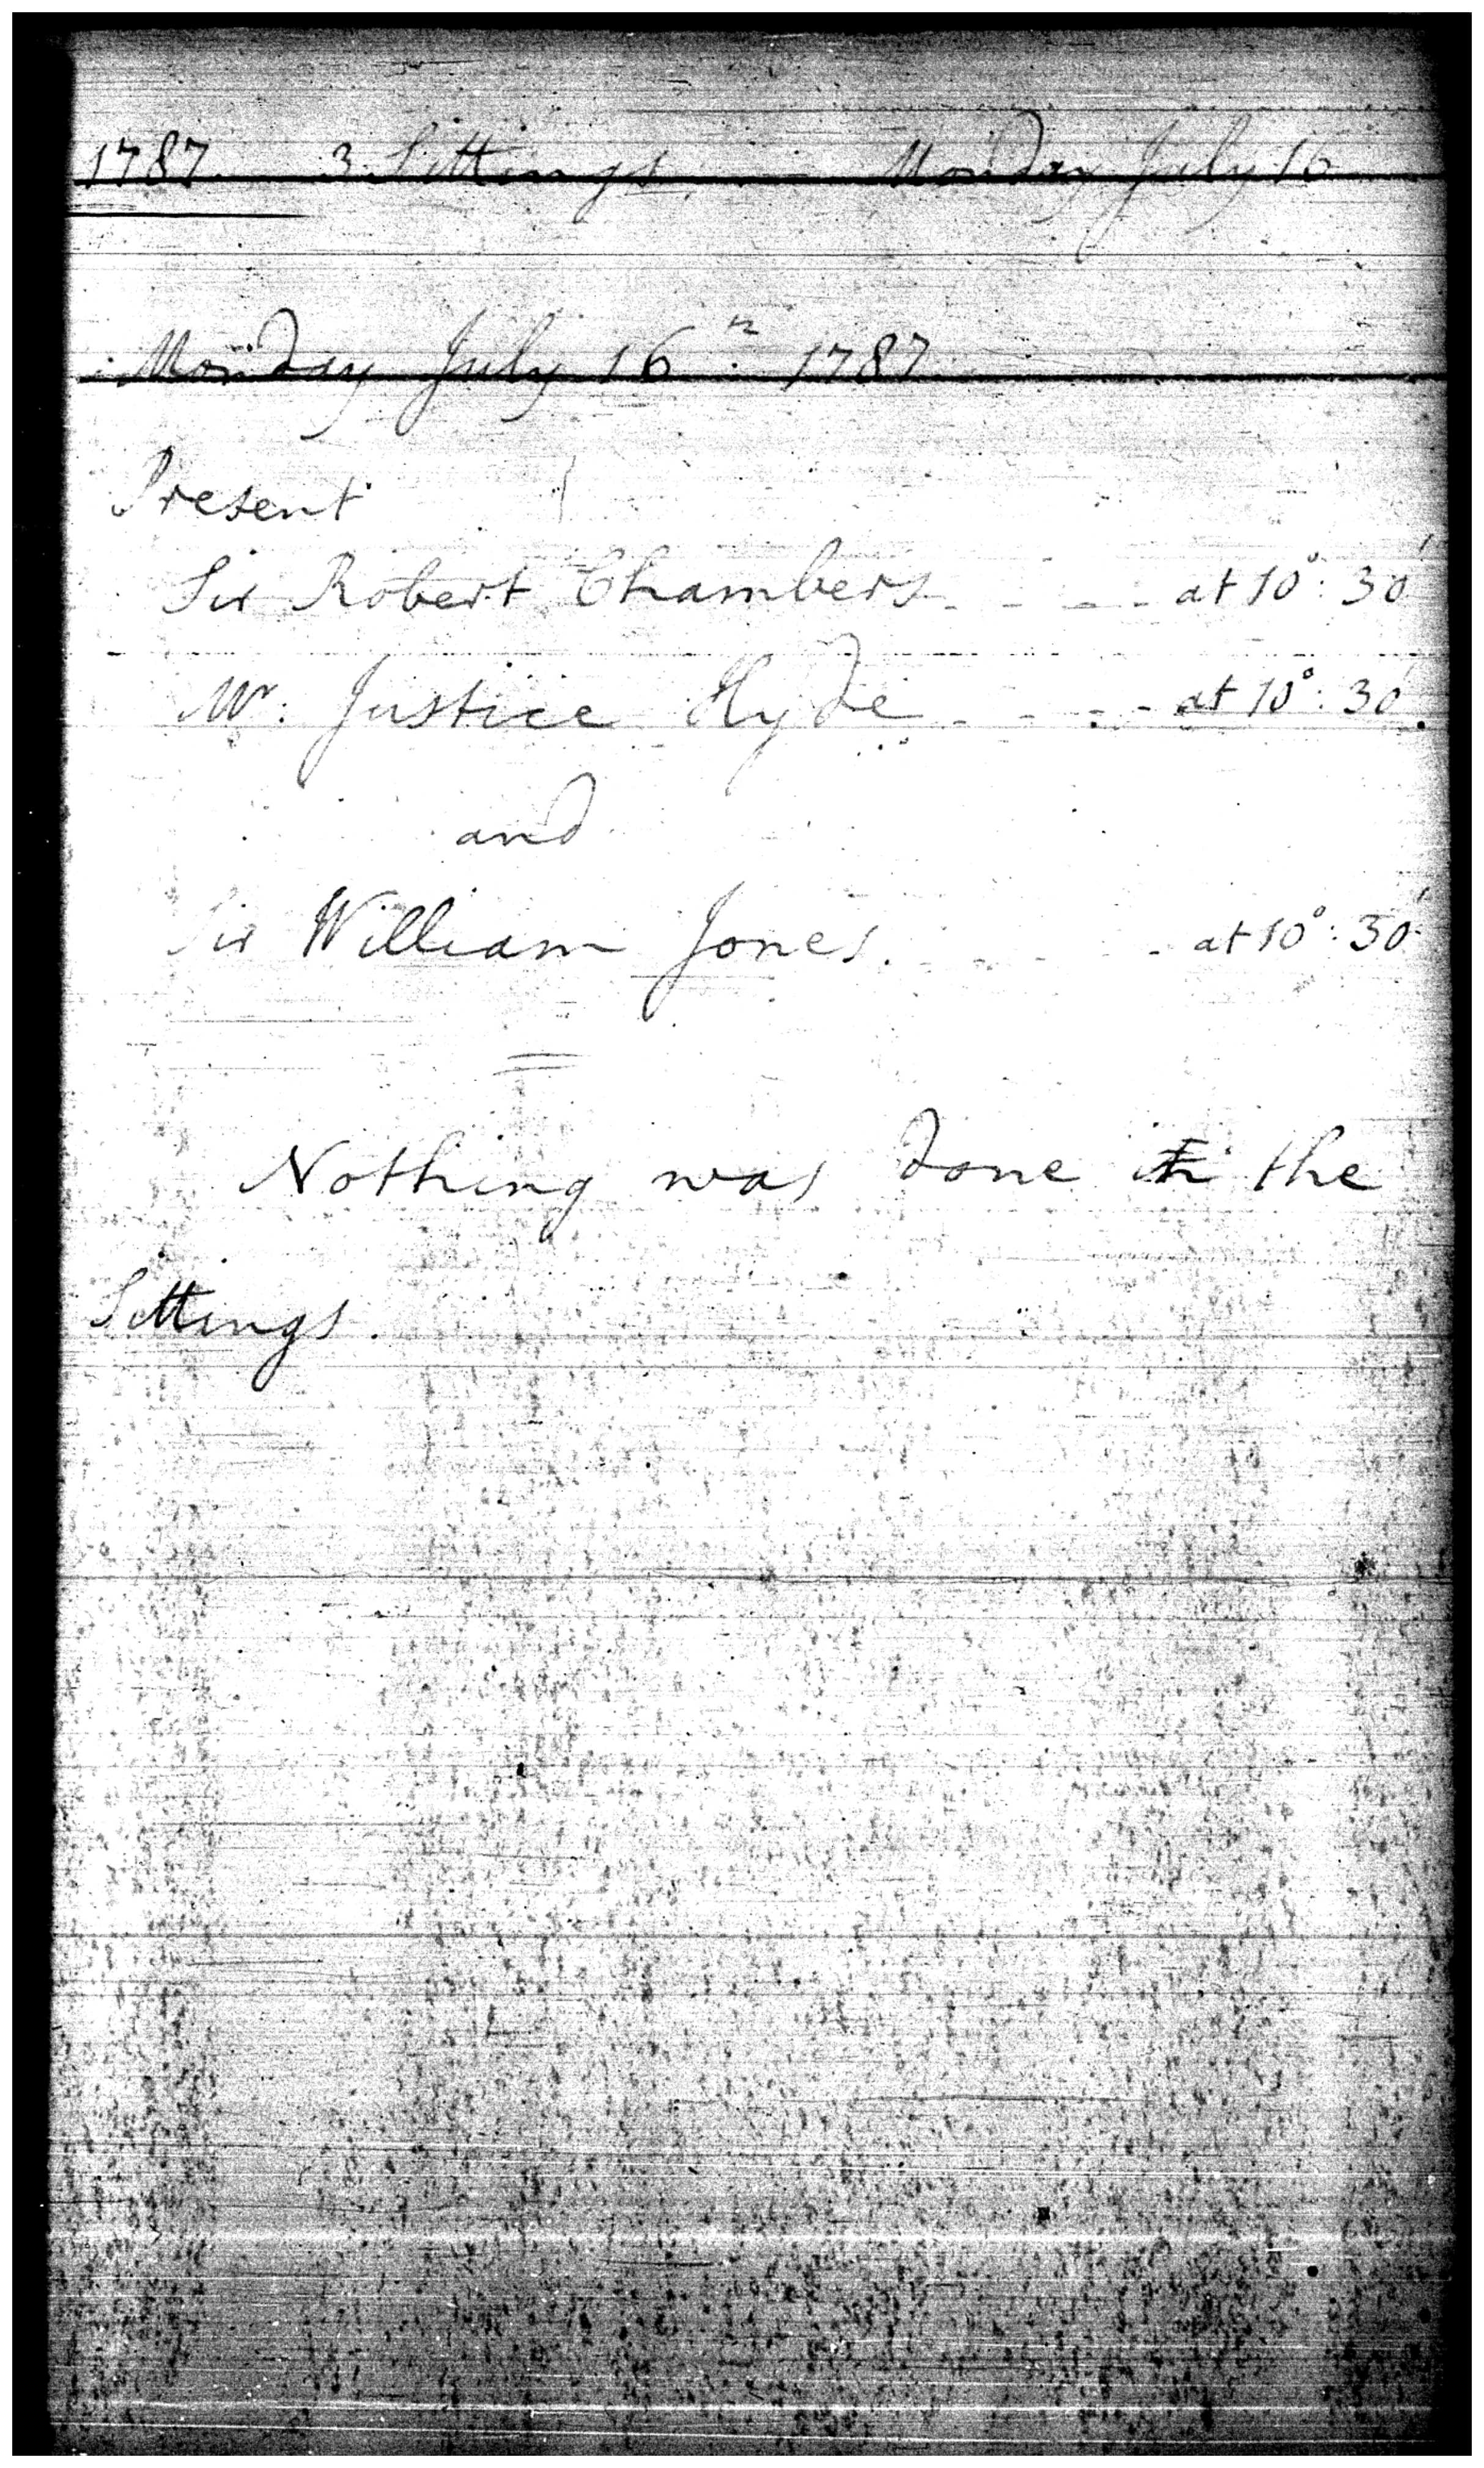 1787. 3 Sittings. Monday July 16
Monday July 16th. 1787
Present
Sir Robert Chambers - - - - at 10°: 30'
Mr. Justice Hyde - - - - at 10°: 30'.
and
Sir William Jones. - - - - at 10°: 30'
Nothing was done in the
Sittings.